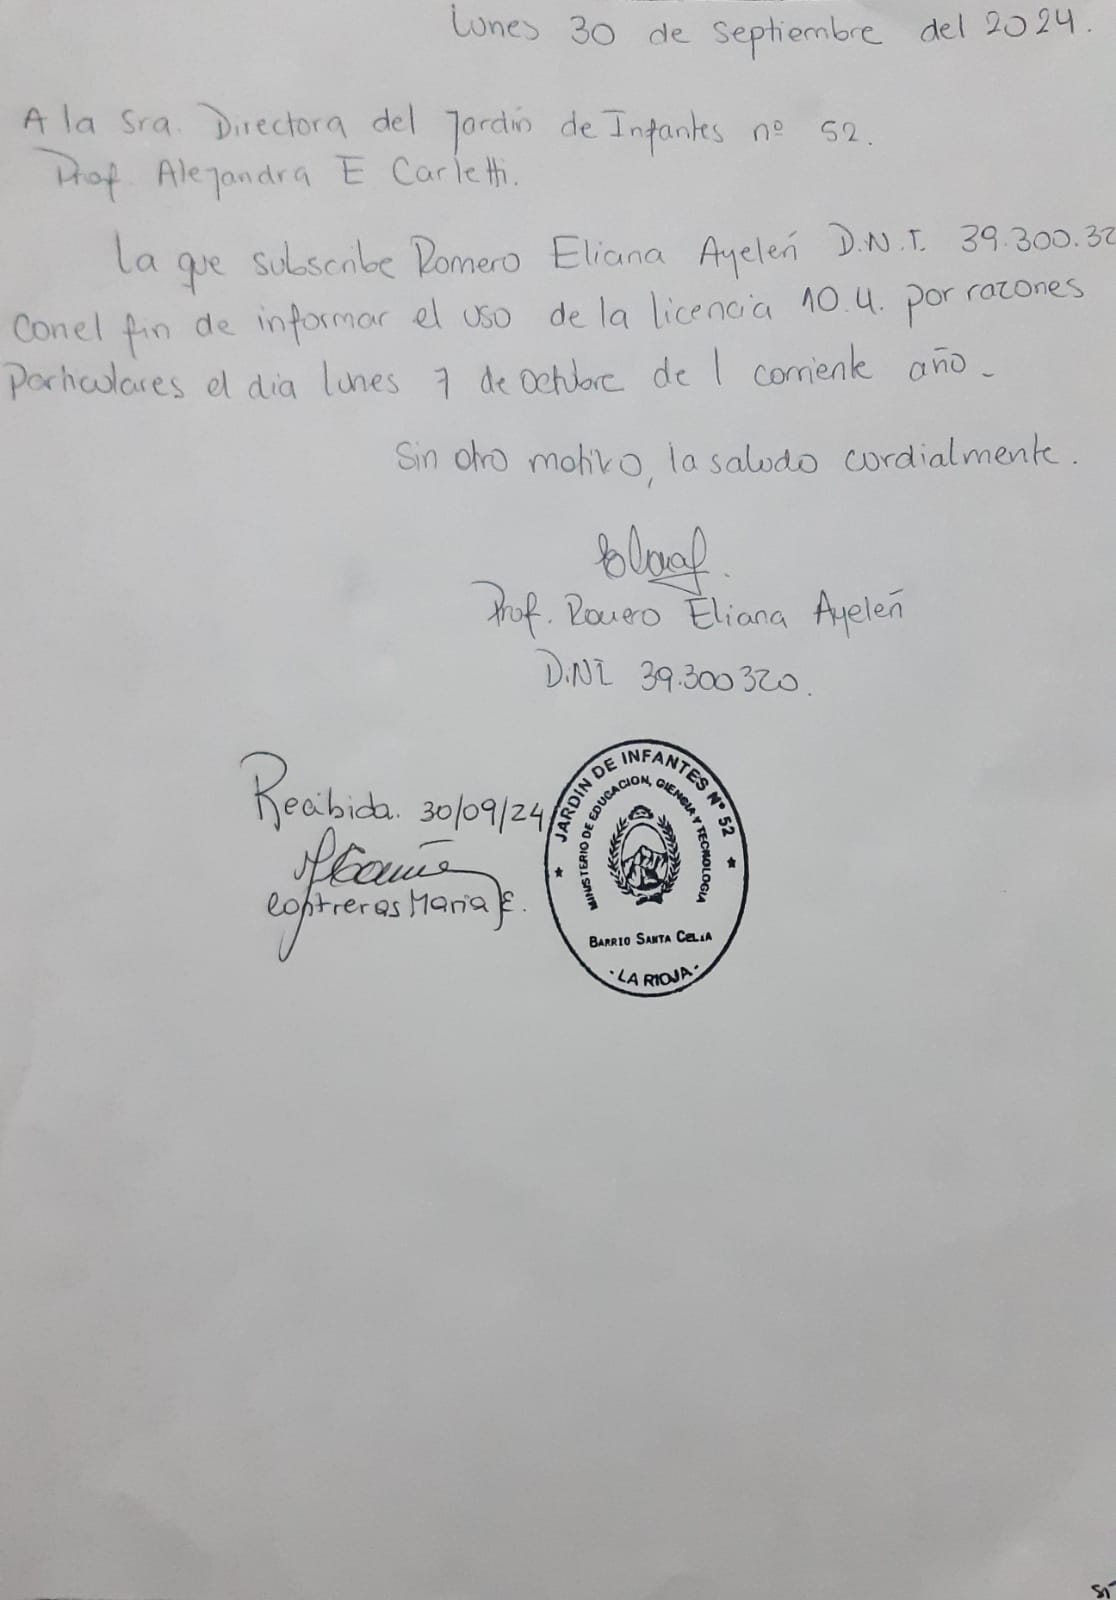 Lunes 30 de Septiembre del 2024.
A la Sra. Directora del Jardín de Infantes nº 52.
Prof. Alejandra E Carletti.
La que subscribe Romero Eliana Ayelén D.N.I. 39.300.32
Conel fin de informar el uso de la licencia 10.4. por razones
Particulares el dia lunes 7 de Octubre de l corriente año.
Sin otro motivo, la saludo cordialmente.
Prof. Romero Eliana Ayelén
D.NI 39.300320.
Recibida. 30/09/24
Contreras Maria E.
JARDIN DE INFANTES Nº 52
MINISTERIO DE EDUCACION, CIENCIA Y TECNOLOGIA
BARRIO SANTA CELIA
LA RIOJA